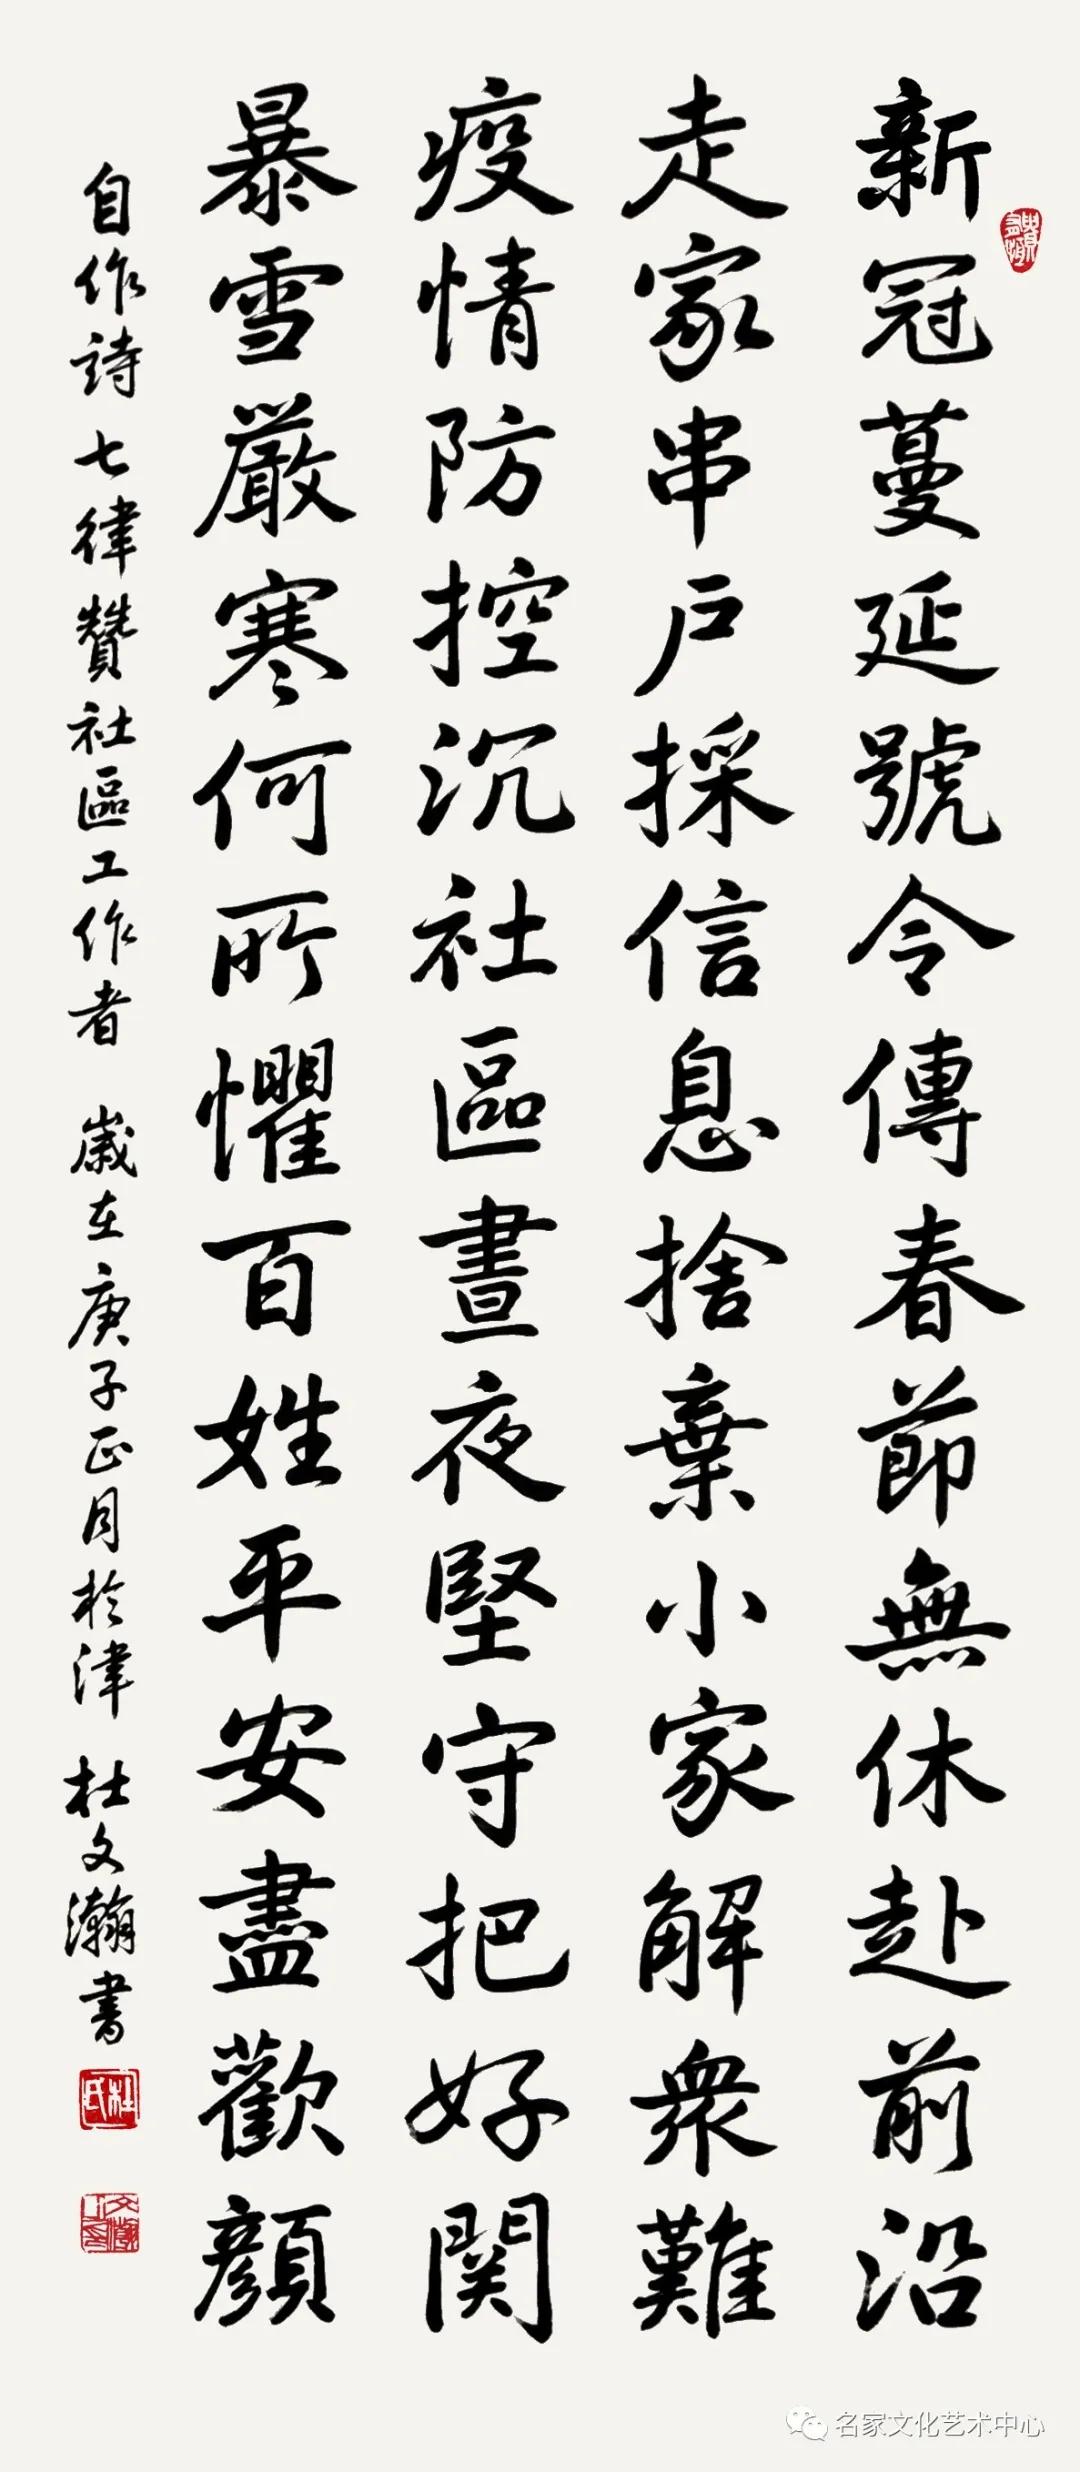 新冠蔓延號令傳春節無休赴前沿
走家串戶採信息捨棄小家解衆難
疫情防控沉社區晝夜堅守把好関
暴雪嚴寒何所懼百姓平安盡歡顏
自作詩七律贊社區工作者 歲在庚子正月於津 杜文瀚書
杜氏
名家文化艺术中心